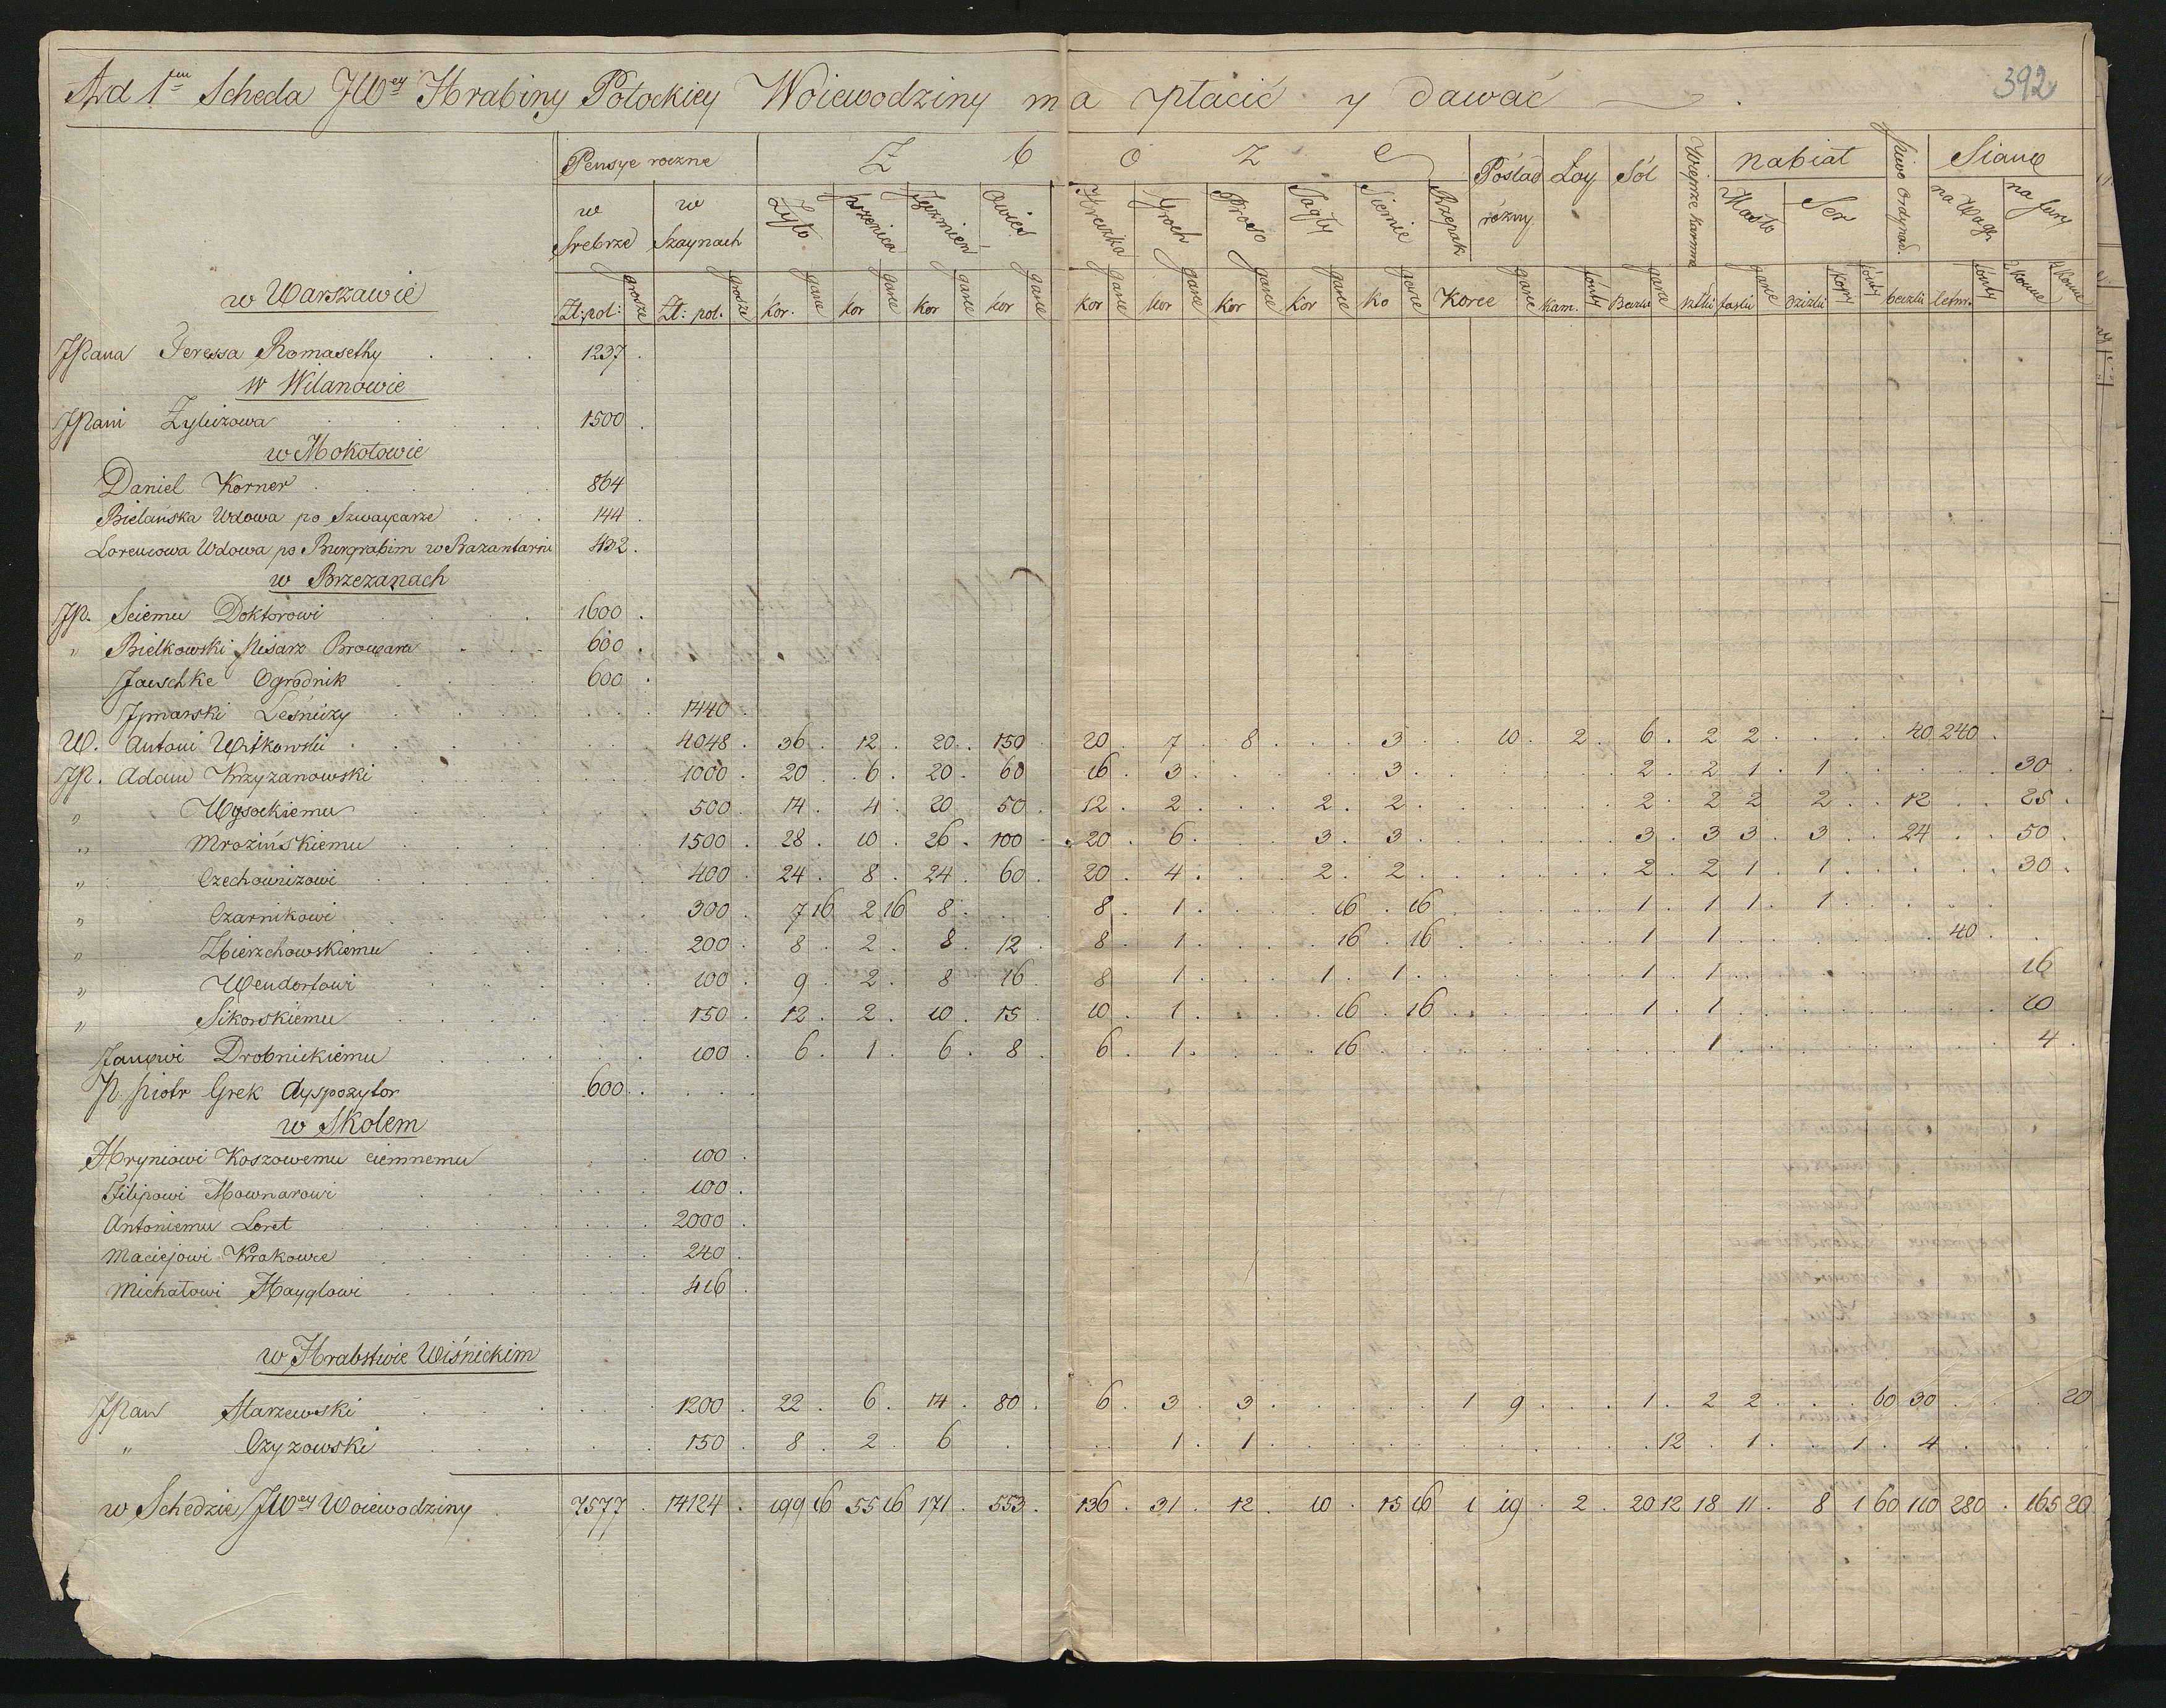 392
Ad 1em Scheda JWey Hrabiny Potockiey Woiewodziny ma płacić y dawać
Pensye roczne Z b o z e Poślad różny Łoy Sól Wieprze karmne nabiał Piwo Ordynar. Siano
w Srebrze w Szaynach Żyto Pszenica Jęczmień Owies Hreczka Groch Proso Jagły Siemie Rzepak Masło Ser na Wagę na fury
Zł: pol: grosze Zł: pol. grosze kor. garce kor garce kor garce kor garce kor garce kor garce kor garce kor garce ko garce Koree garce kam. fonty Beczki garce sztuki faski garce dzizki kopy fonty beczki fonty 2 Konne 4 Konne
w Warszawie
JPana Teressa Romasethy 1237
w Wilanowie
JPani Zylizowa 1500
w Mokotowie
Daniel Korner 864
Bielańska Wdowa po Szwaycarze 144
Lorencowa Wdowa po Burgrabim w Bazantarni 432
w Brzezanach
JP. Sciemu Doktorowi 1600
" Bielkowski Pisarz Browaru 600
Jaeschke Ogrodnik 600
Jymarski Leśniczy 1440
W. Antoni Witkowski 4048 36 12 20 150 20 7 8 3 10 2 6 2 2 40 240
JP. Adam Krzyzanowski 1000 20 6 20 60 16 3 3 2 2 1 1 30
" Wysockiemu 500 14 4 20 50 12 2 2 2 2 2 2 2 12 25
" Mrozińskiemu 1500 28 10 26 100 20 6 3 3 3 3 3 3 24 50
" Czechowiczowi 400 24 8 24 60 20 4 2 2 2 2 1 1 30
" Czarnikowi 300 7 16 2 16 8 8 1 16 16 1 1 1 1
" Zbierzchowskiemu 200 8 2 8 12 8 1 16 16 1 1 40
" Wendorfowi 100 9 2 8 16 8 1 1 1 1 1 16
" Sikorskiemu 150 12 2 10 15 10 1 16 16 1 1 10
Janowi Drobnickiemu 100 6 1 6 8 6 1 16 1 4
P Piotr Grek dyspozytor 600
w Skolem
Hryniowi Koszowemu ciemnemu 100
Filipowi Mownarowi 100
Antoniemu Loret 2000
Maciejowi Krakowce 240
Michałowi Hayglowi 416
w Hrabstwie Wiśnickim
JPan Marzewski 1200 22 6 14 80 6 3 3 1 9 1 2 2 60 30 20
" Czyzowski 150 8 2 6 1 1 12 1 1 4
w Schedzie JWey Woiewodziny 7577 14124 199 16 55 16 171 553 136 31 12 10 15 16 1 19 2 20 12 18 11 8 1 60 110 280 165 20